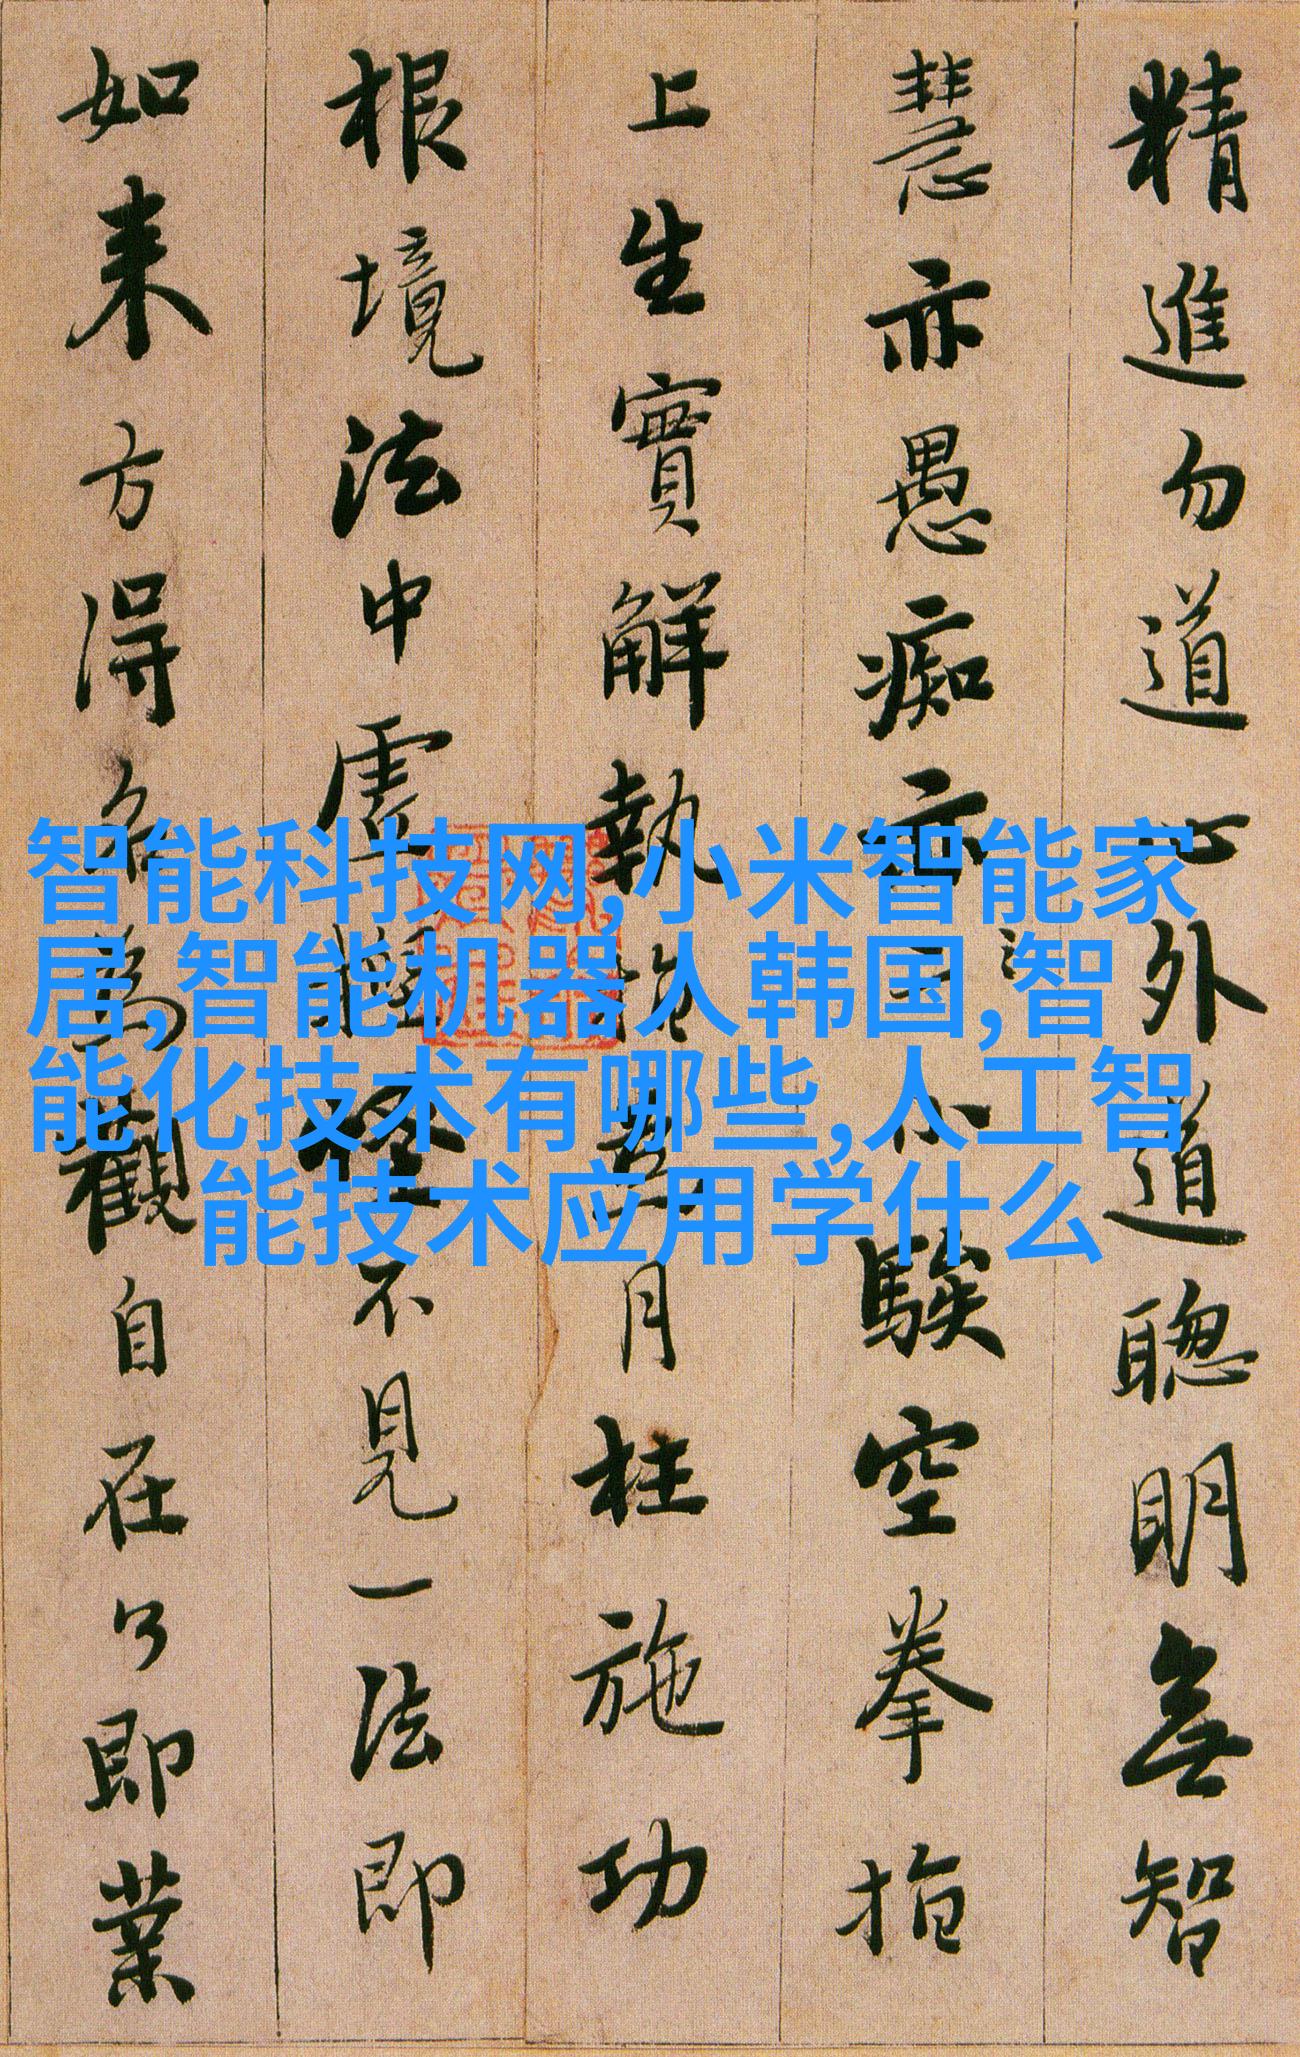 精進勿道心外道聰明無智
慧亦愚痴亦小騃空拳指
上生實解執指為月枉施功
根境法中虛捏怪不見一法即
如来方得名為觀自在了即業
智能科技网,小米智能家
居,智能机器人韩国,智
能化技术有哪些,人工智
能技术应用学什么